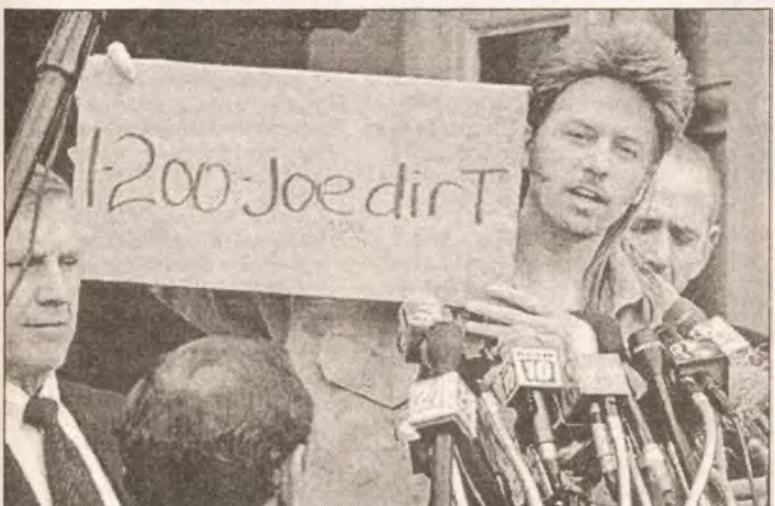 1-200-JoedirT
10